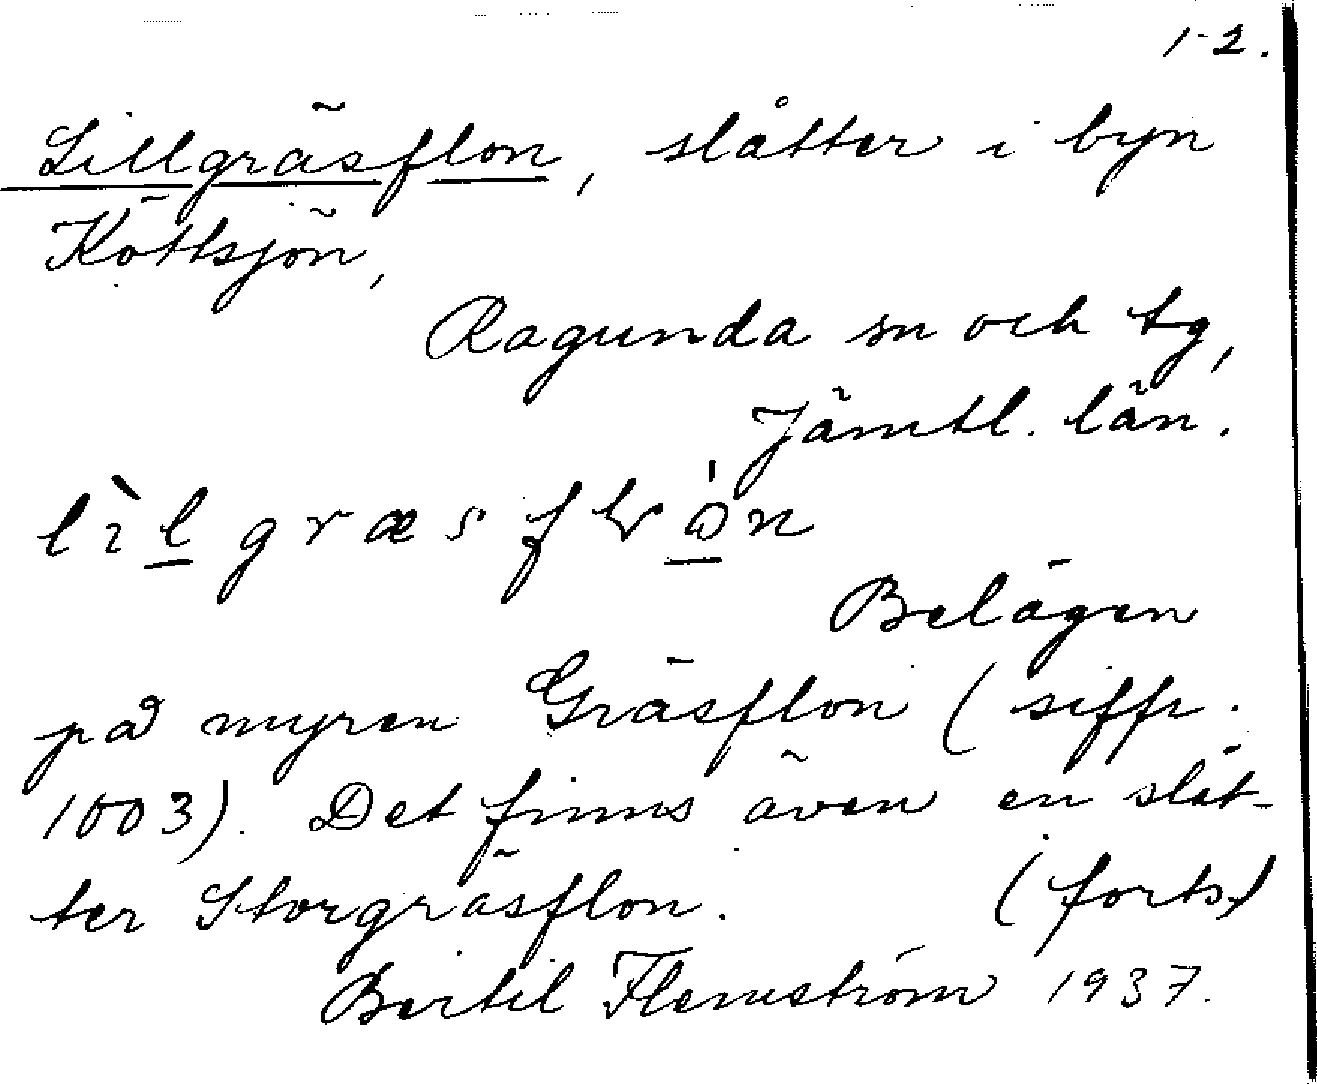 1-2.
Lillgräsflon, slåtter i byn
Köttsjön,
Ragunda sn och tg,
Jämtl. län.
lìlgræsflɷ́n
Belägen
på myren Gräsflon (siffr.
1003). Det finns även en slåt-
ter Storgräsflon. (forts.)
Bertil Flemström 1937.